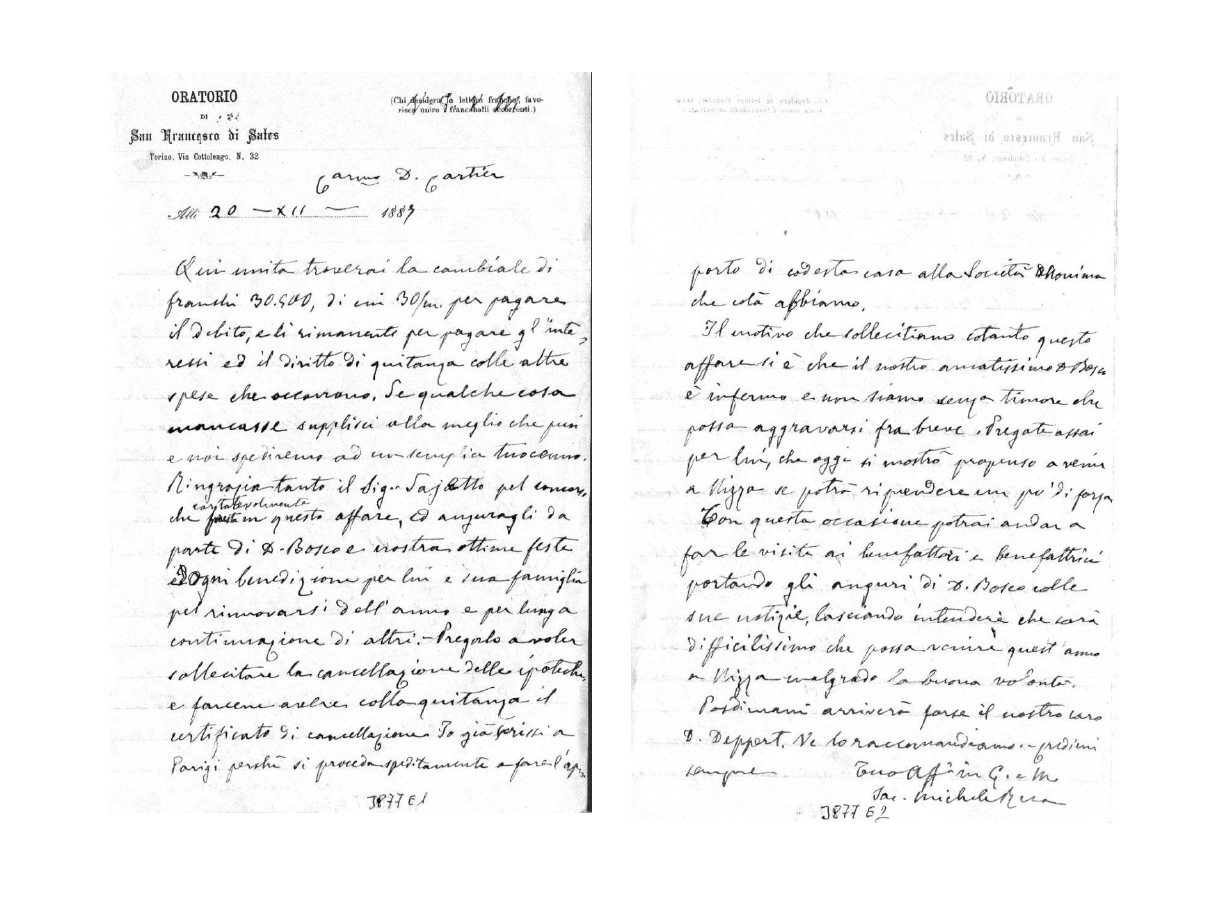 ORATORIO
DI
San Francesco di Sales
Torino, Via Cottolengo, N. 32
(Chi desidera la lettera franca, favo-
risca unire i francobolli occorrenti.)
Carmo D. Cartier
Alli 20 — XII — 1887
Qui unita troverai la cambiale di
franchi 30.500, di cui 30/m. per pagare
il debito, e li rimanenti per pagare gl'inte,
ressi ed il diritto di quitanza colle altre
spese che occorrono. Se qualche cosa
mancasse supplisci alla meglio che puoi
e noi spediremo ad un semplice tuo cenno.
Ringrazia tanto il Sig. Sajetto pel concorso
caritatevolmente
che in questo affare, ed auguragli da
parte di D. Bosco e nostra ottime feste
ed ogni benedizione per lui e sua famiglia
pel rinnovarsi dell'anno e per lunga
continuazione di altri. - Pregalo a voler
sollecitare la cancellazione delle ipoteche,
e farcene avere colla quitanza il
certificato di cancellazione. Io già scrissi a
Parigi perchè si proceda speditamente a fare l'ap,
J877 E1
ORATORIO
DI
San Francesco di Sales
porto di codesta casa alla Società Anonima
che colà abbiamo.
Il motivo che sollecitiamo cotanto questo
affare si è che il nostro amatissimo D Bosco
è infermo e non siamo senza timore che
possa aggravarsi fra breve. Pregate assai
per lui, che oggi si mostrò propenso a venir
a Nizza se potrà riprendere un po' di forza
Con questa occasione potrai andar a
far le visite ai benefattori e benefattrici
portando gli auguri di D. Bosco colle
sue notizie, lasciando intendere che sarà
difficilissimo che possa venire quest'anno
a Nizza malgrado la buona volontà.
Posdimani arriverà forse il nostro caro
D. Deppert. Ve lo raccomandiamo. - credimi
sempre Tuo Aff in G. e M
Sac. Michele Rua
J877 E2